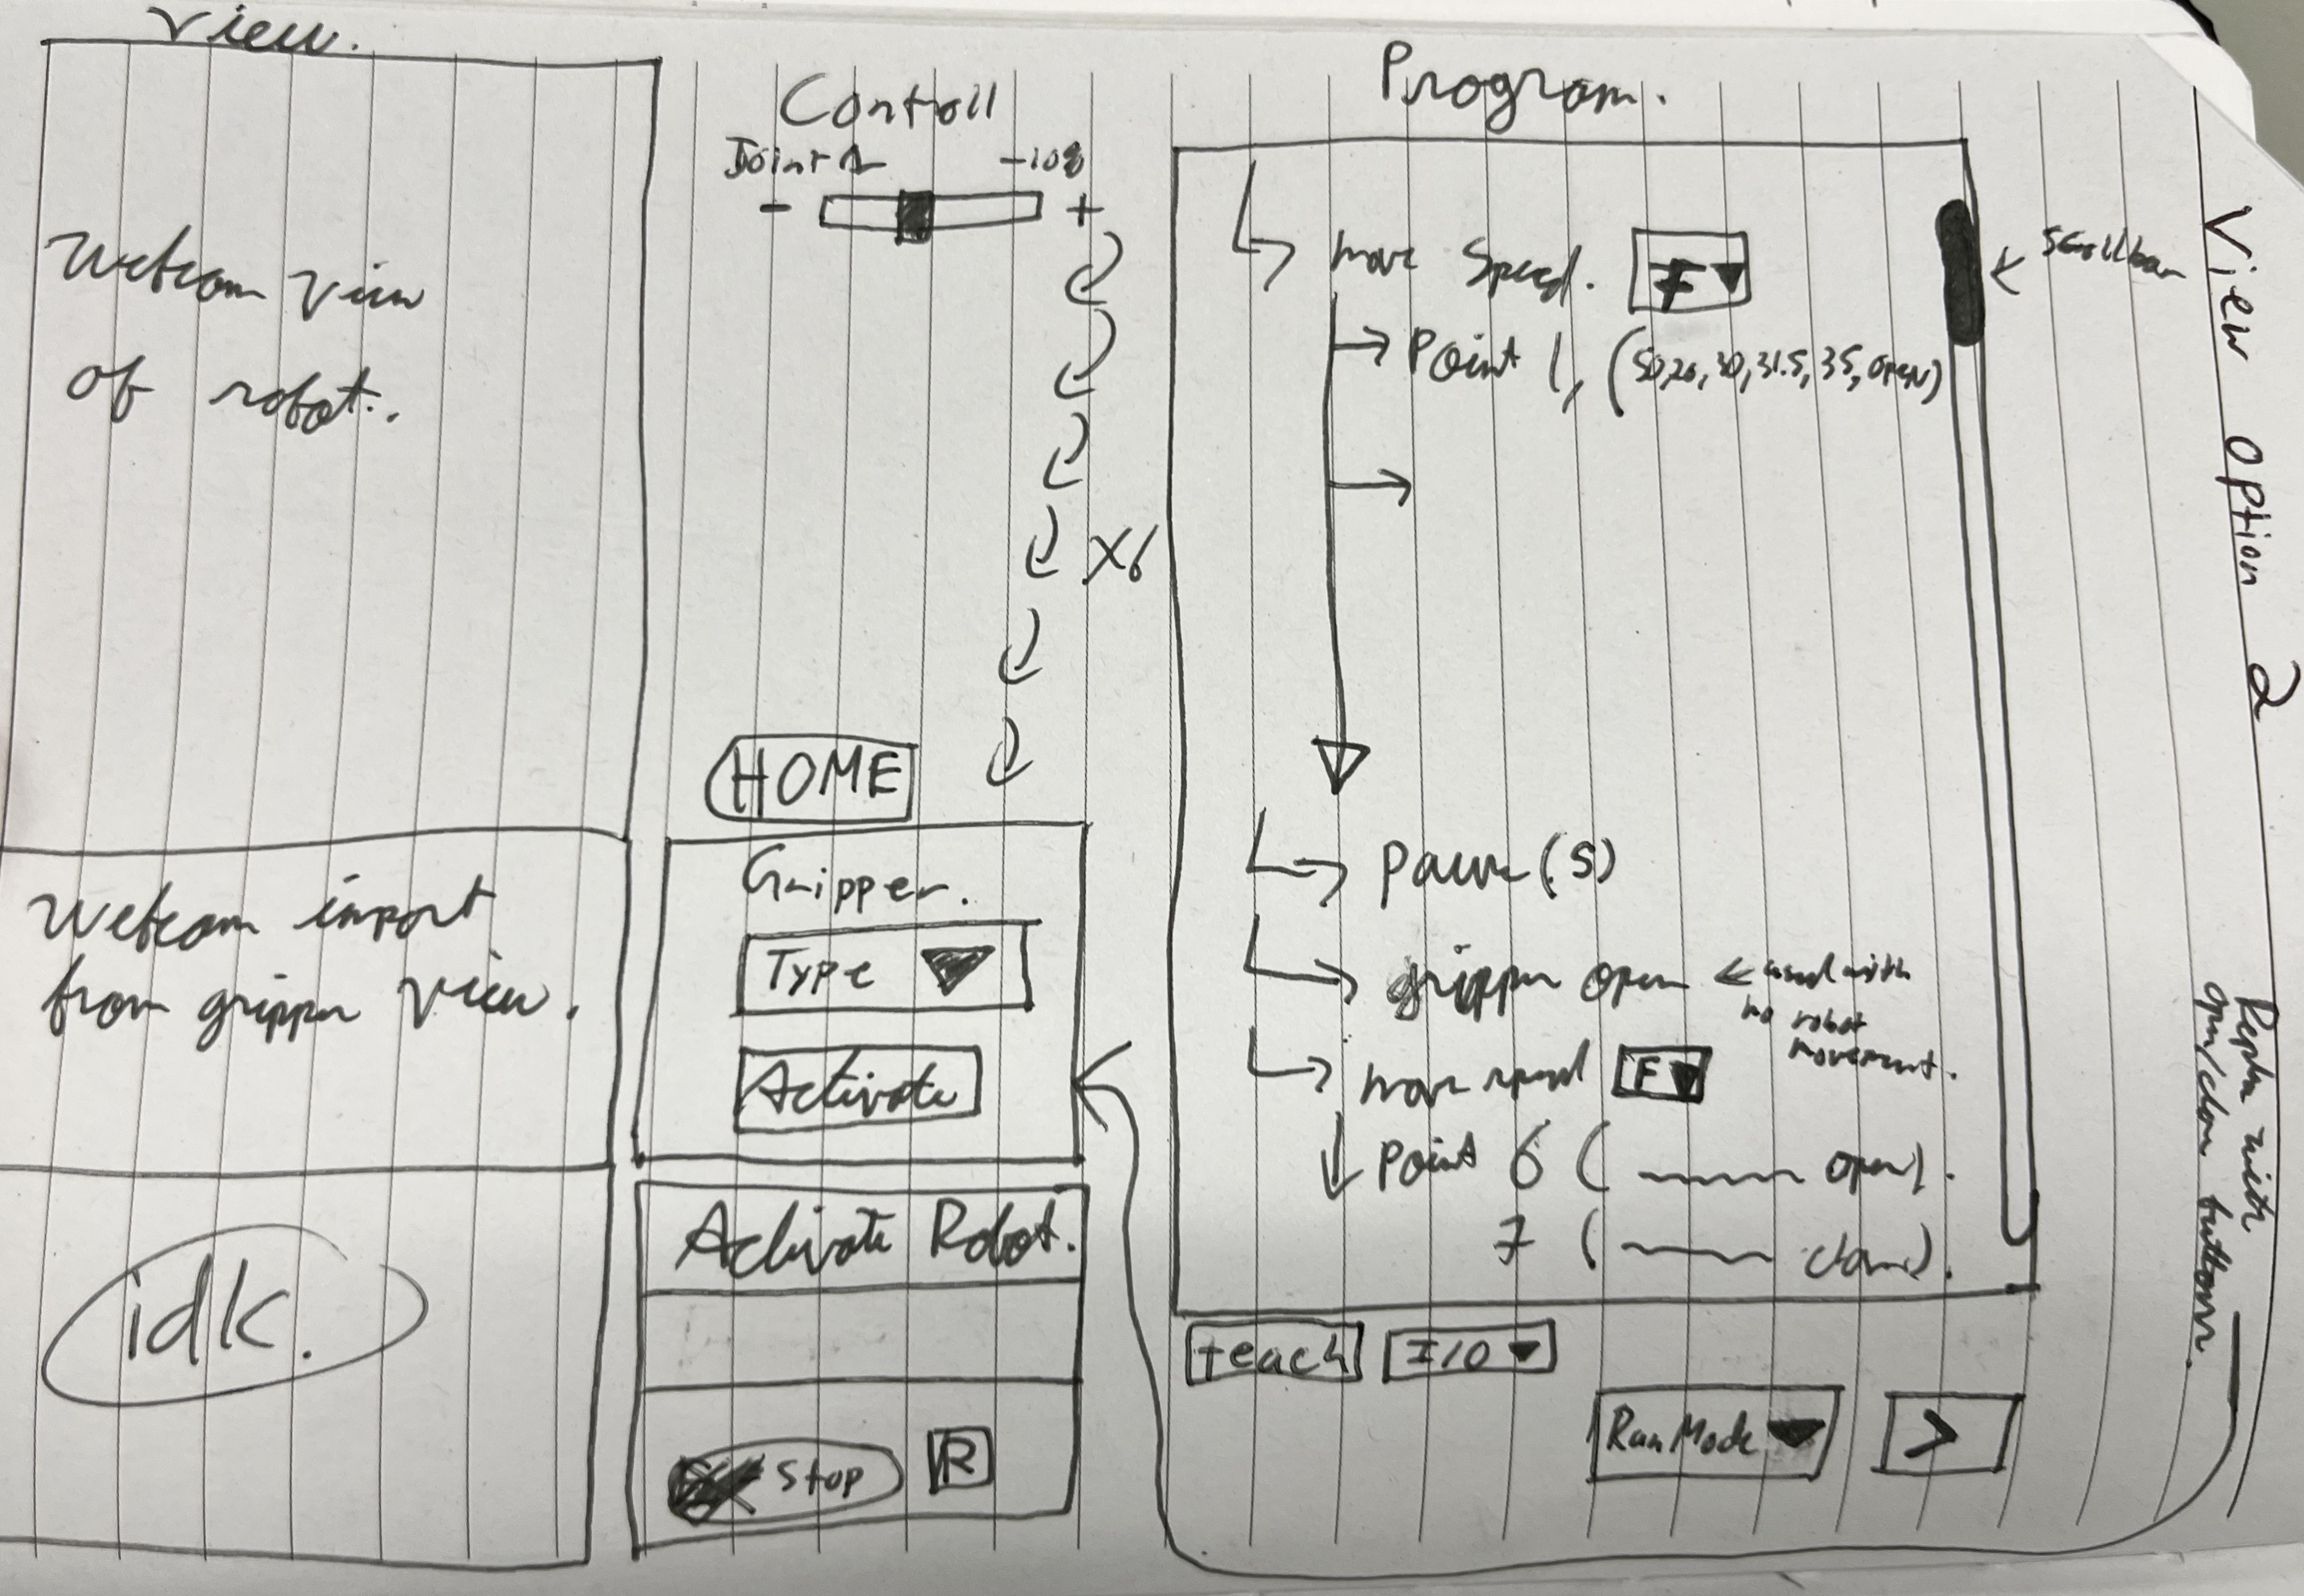 View.
Webcam view
of robot.
Webcam import
from gripper view.
idk.
Controll
Joint 1
- +
X6
HOME
Gripper.
Type
Activate
Activate Robot.
Stop R
Program.
move Speed. F
Point 1, (50,20,30,31.5,35,open)
pause (s)
gripper open ← used with
no robot
movement.
move speed F
Point 6 ( open).
7 ( close).
teach I/O
Run Mode >
← scrollbar
View Option 2
Replace with
open/close buttons.